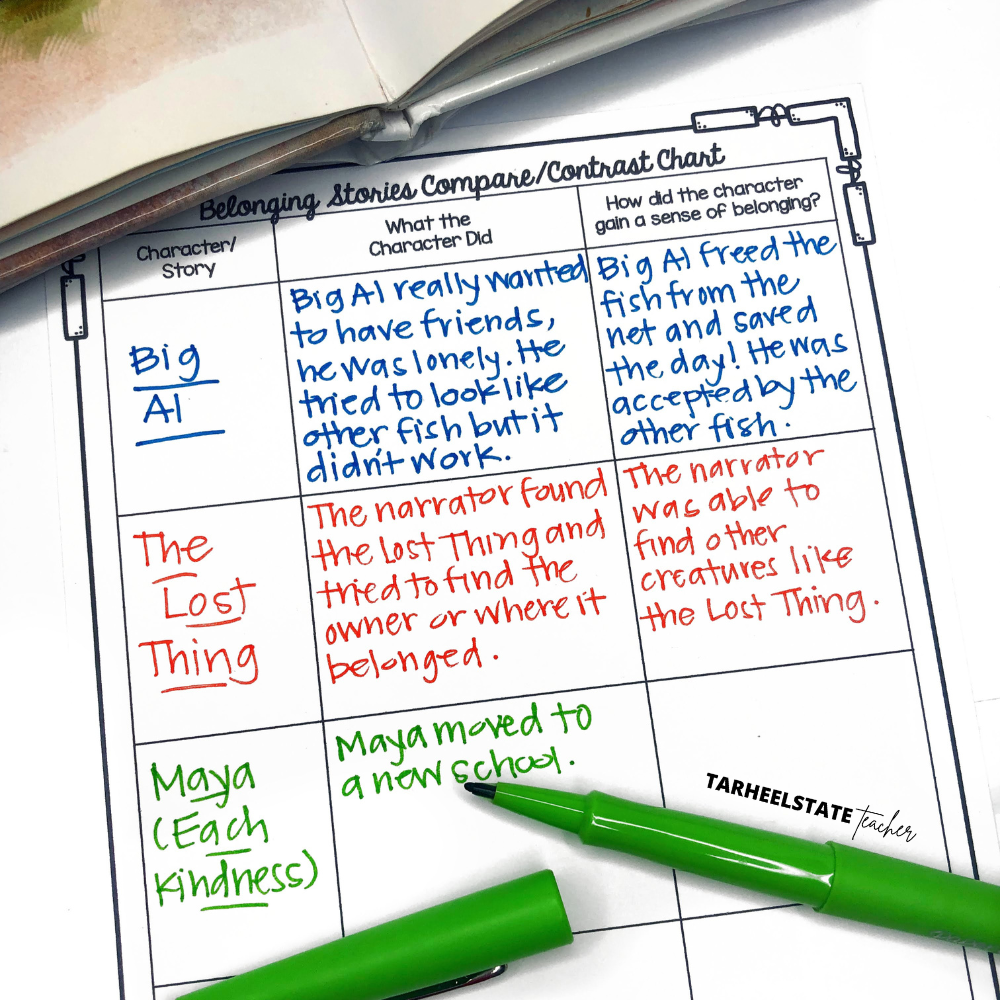 Belonging Stories Compare/Contrast Chart
Character/
Story
What the
Character Did
How did the character
gain a sense of belonging?
Big
Al
Big Al really wanted
to have friends,
he was lonely. He
tried to look like
other fish but it
didn't work.
Big Al freed the
fish from the
net and saved
the day! He was
accepted by the
other fish.
The
Lost
Thing
The narrator found
the Lost Thing and
tried to find the
owner or where it
belonged.
The narrator
was able to
find other
creatures like
the Lost Thing.
Maya
(Each
Kindness)
Maya moved to
a new school.
TARHEELSTATE teacher